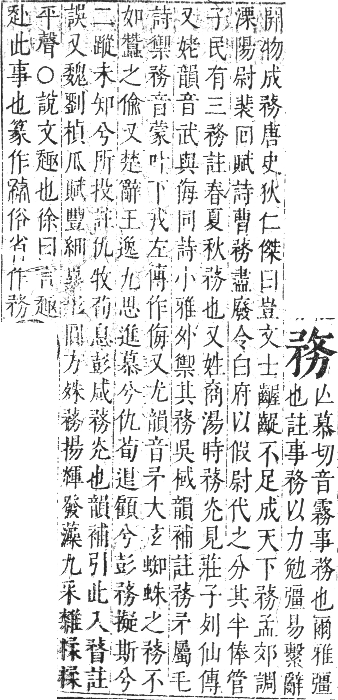 務
亾慕切音霧事務也爾雅彊
也註事務以力勉彊易繫辭
開物成務唐史狄仁傑曰豈文士齷齪不足成天下務孟郊調
溧陽尉裴回賦詩曹務盡廢令白府以假尉代之分其半俸管
子民有三務註春夏秋務也又姓商湯時務光見莊子列仙傳
又姥韻音武與侮同詩小雅外禦其務吳棫韻補註務矛屬毛
詩禦務音蒙叶下戎左傳作侮又尤韻音矛大玄蜘蛛之務不
如蠶之偸又楚辭王逸九思進慕兮仇荀退顧兮彭務擬斯兮
二蹤未知兮所投註仇牧荀息彭咸務光也韻補引此入瞀註
誤又魏劉楨瓜賦豐細異形圓方殊務揚輝發藻九采雜糅糅
平聲○說文趣也徐曰言趣
赴此事也篆作俗省作務